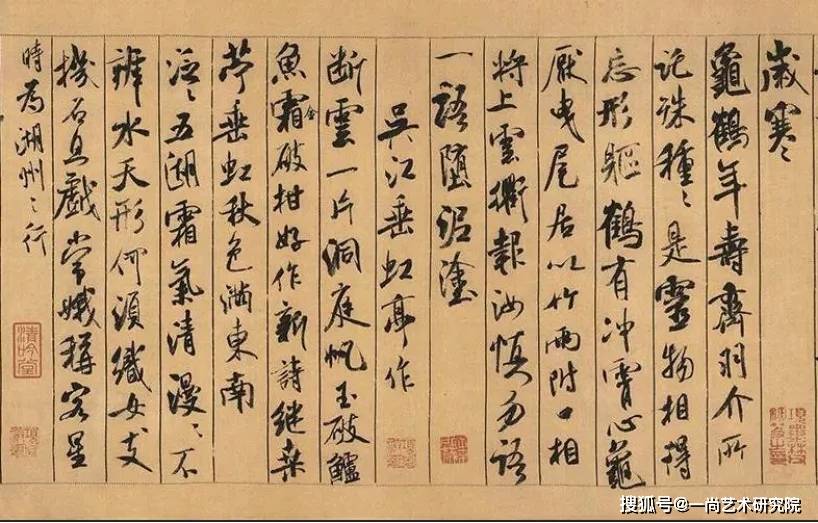 歲寒
龜鶴年壽齊羽介所
託殊種〻是靈物相得
忘形軀鶴有沖霄心龜
厭曳尾居以竹兩附口相
將上雲衢報汝慎勿語
一語墮泥塗
吳江垂虹亭作
断雲一片洞庭帆玉破鱸
魚霜金破柑好作新詩継桑
苧垂虹秋色滿東南
泛〻五湖霜氣清漫〻不
辨水天形何須織女支
機石且戲常娥稱客星
時為湖州之行
清吟堂
搜狐号@一尚艺术研究院